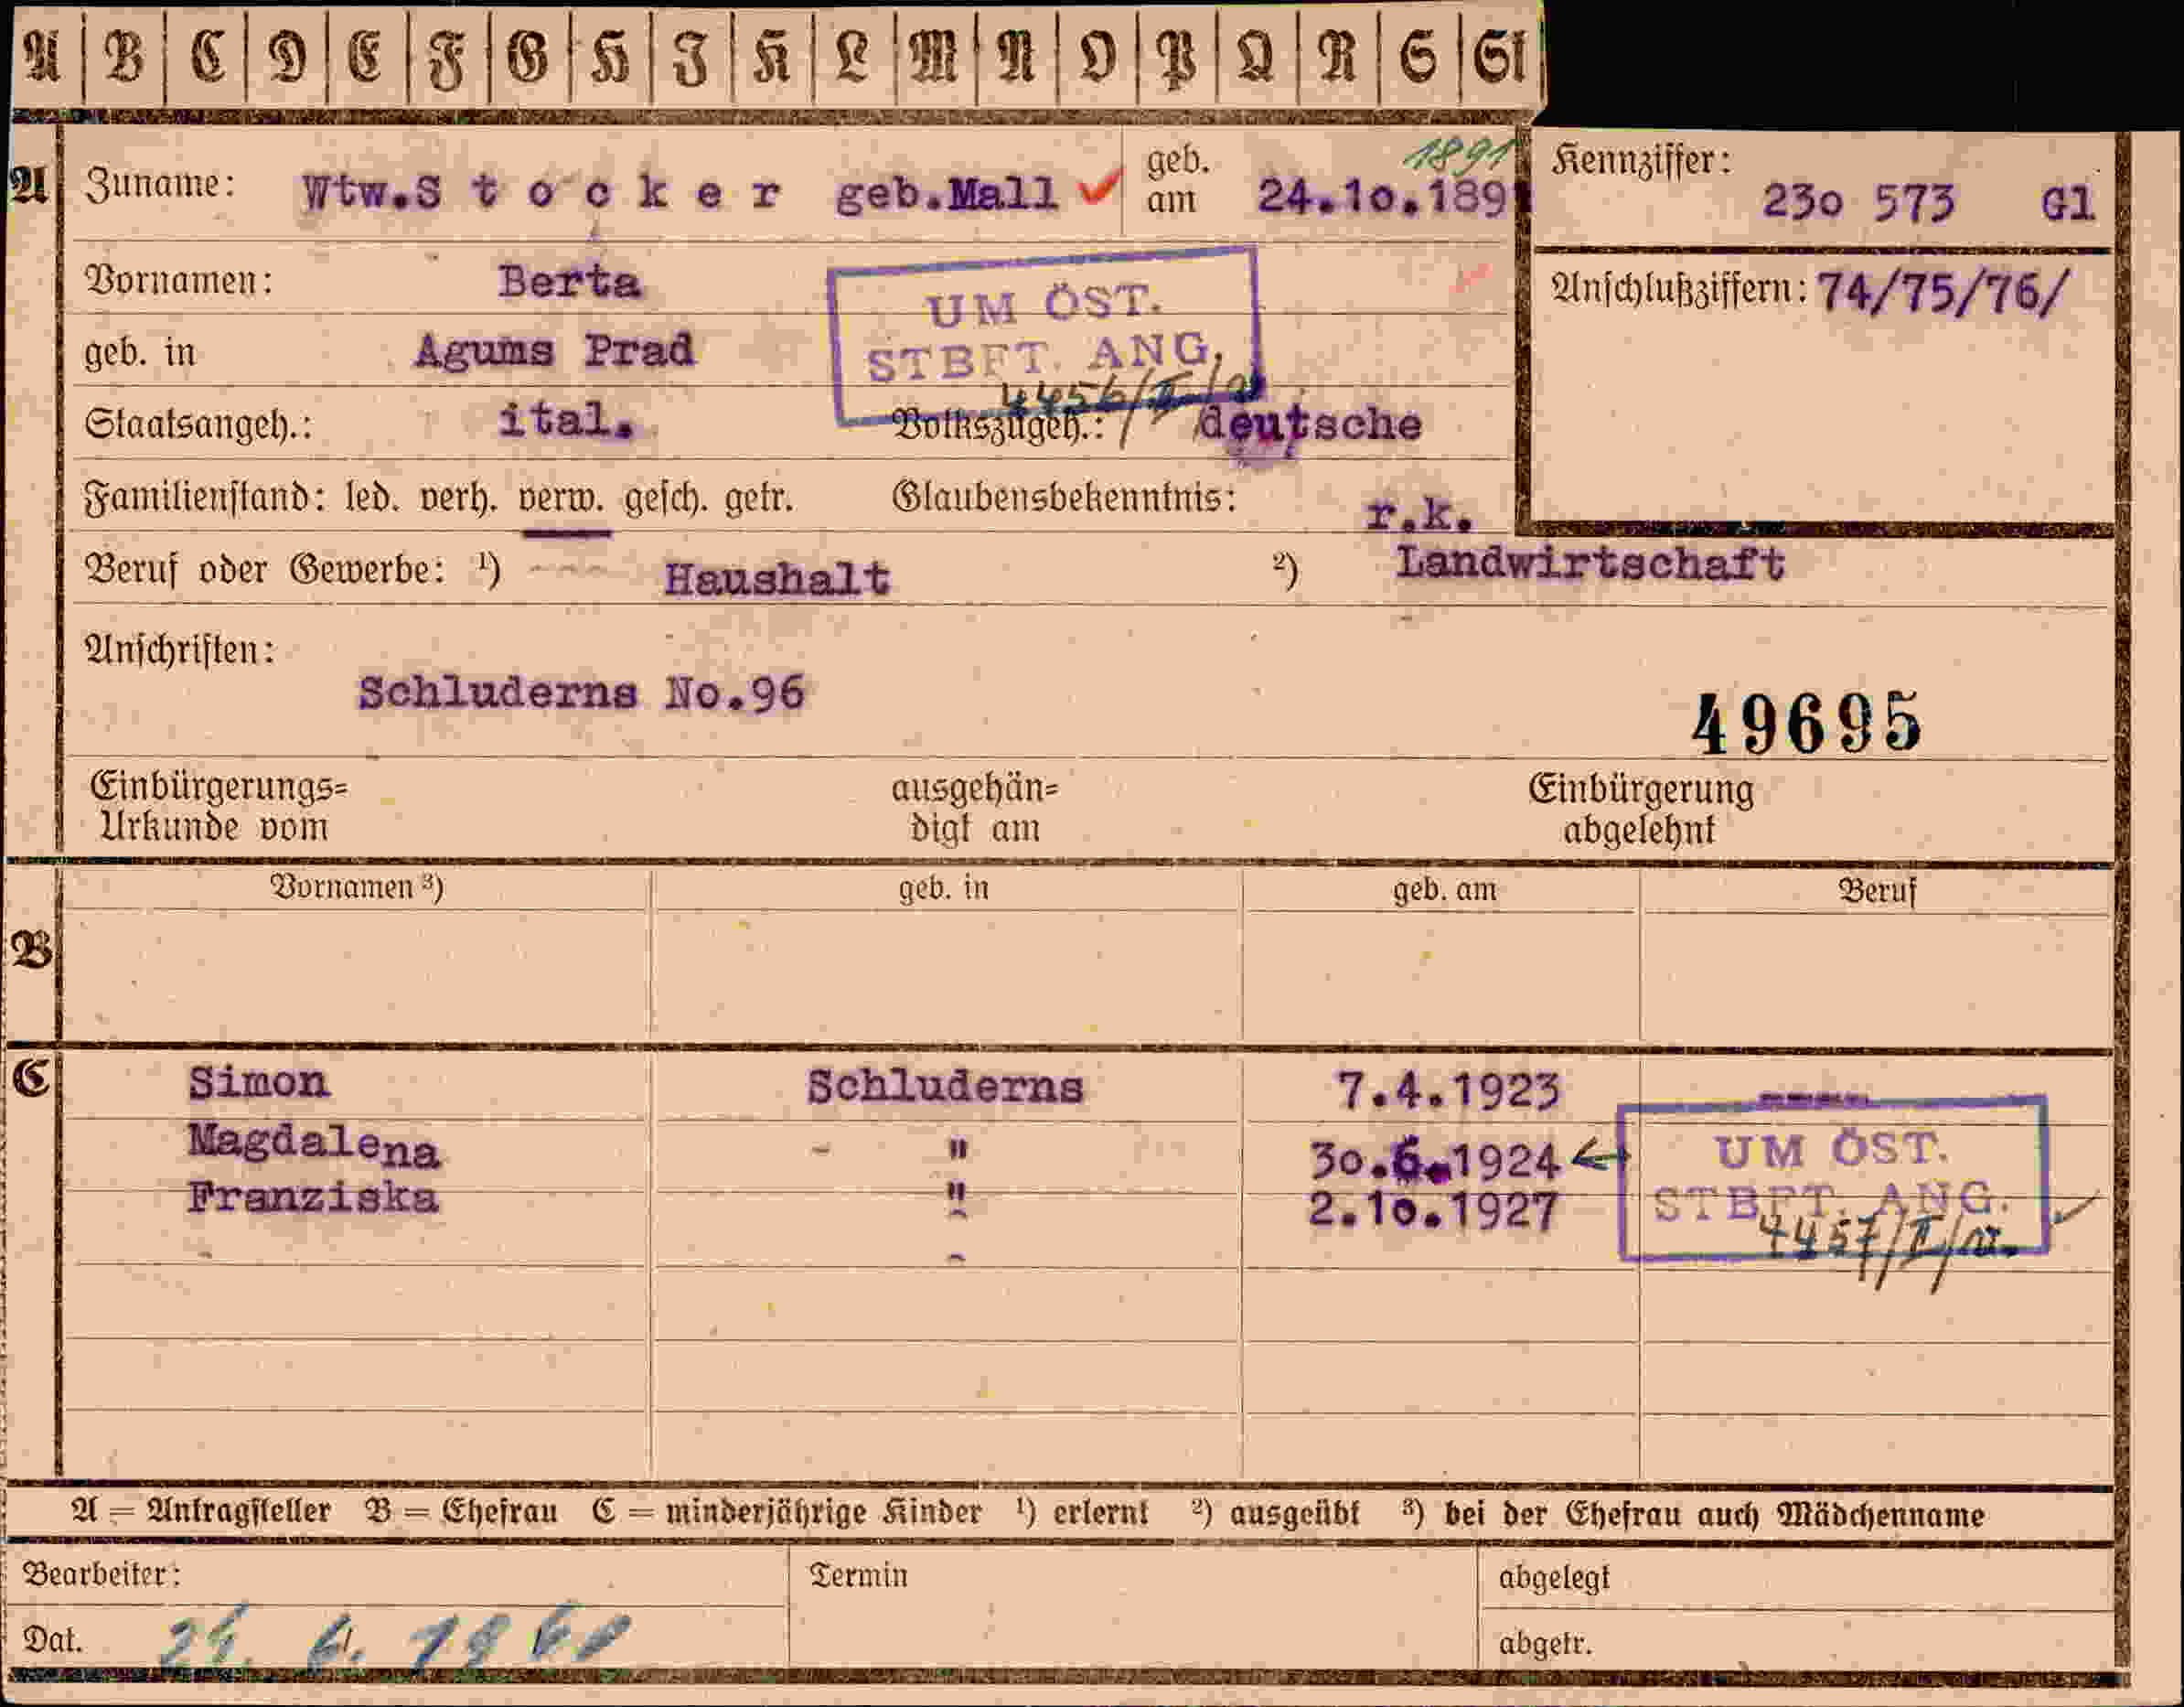 A B C D E F G H I K L M N O P Q R S St
A Zuname: Wtw.S t o c k e r geb.Mall geb. am 24.10.1891 1891
Kennziffer: 230 573 Gl
Vornamen: Berta
Anschlußziffern: 74/75/76/
UM ÖST.
STBFT. ANG.
4456/II/
geb. in Agums Prad
Staatsangeh.: ital. Volkszugeh.: deutsche
Familienstand: led. verh. verw. gesch. getr. Glaubensbekenntnis: r.k.
Beruf oder Gewerbe: 1) --- Haushalt 2) Landwirtschaft
Anschriften:
Schluderns No.96
49695
Einbürgerungs=
Urkunde vom
ausgehän=
digt am
Einbürgerung
abgelehnt
Vornamen 3) geb. in geb. am Beruf
B
C Simon Schluderns 7.4.1923 ----
Magdalena - " 30.6.1924
Franziska " 2.10.1927
UM ÖST.
STBFT. ANG.
4457/II/
A = Antragsteller B = Ehefrau C = minderjährige Kinder 1) erlernt 2) ausgeübt 3) bei der Ehefrau auch Mädchenname
Bearbeiter: Termin abgelegt
Dat. abgetr.